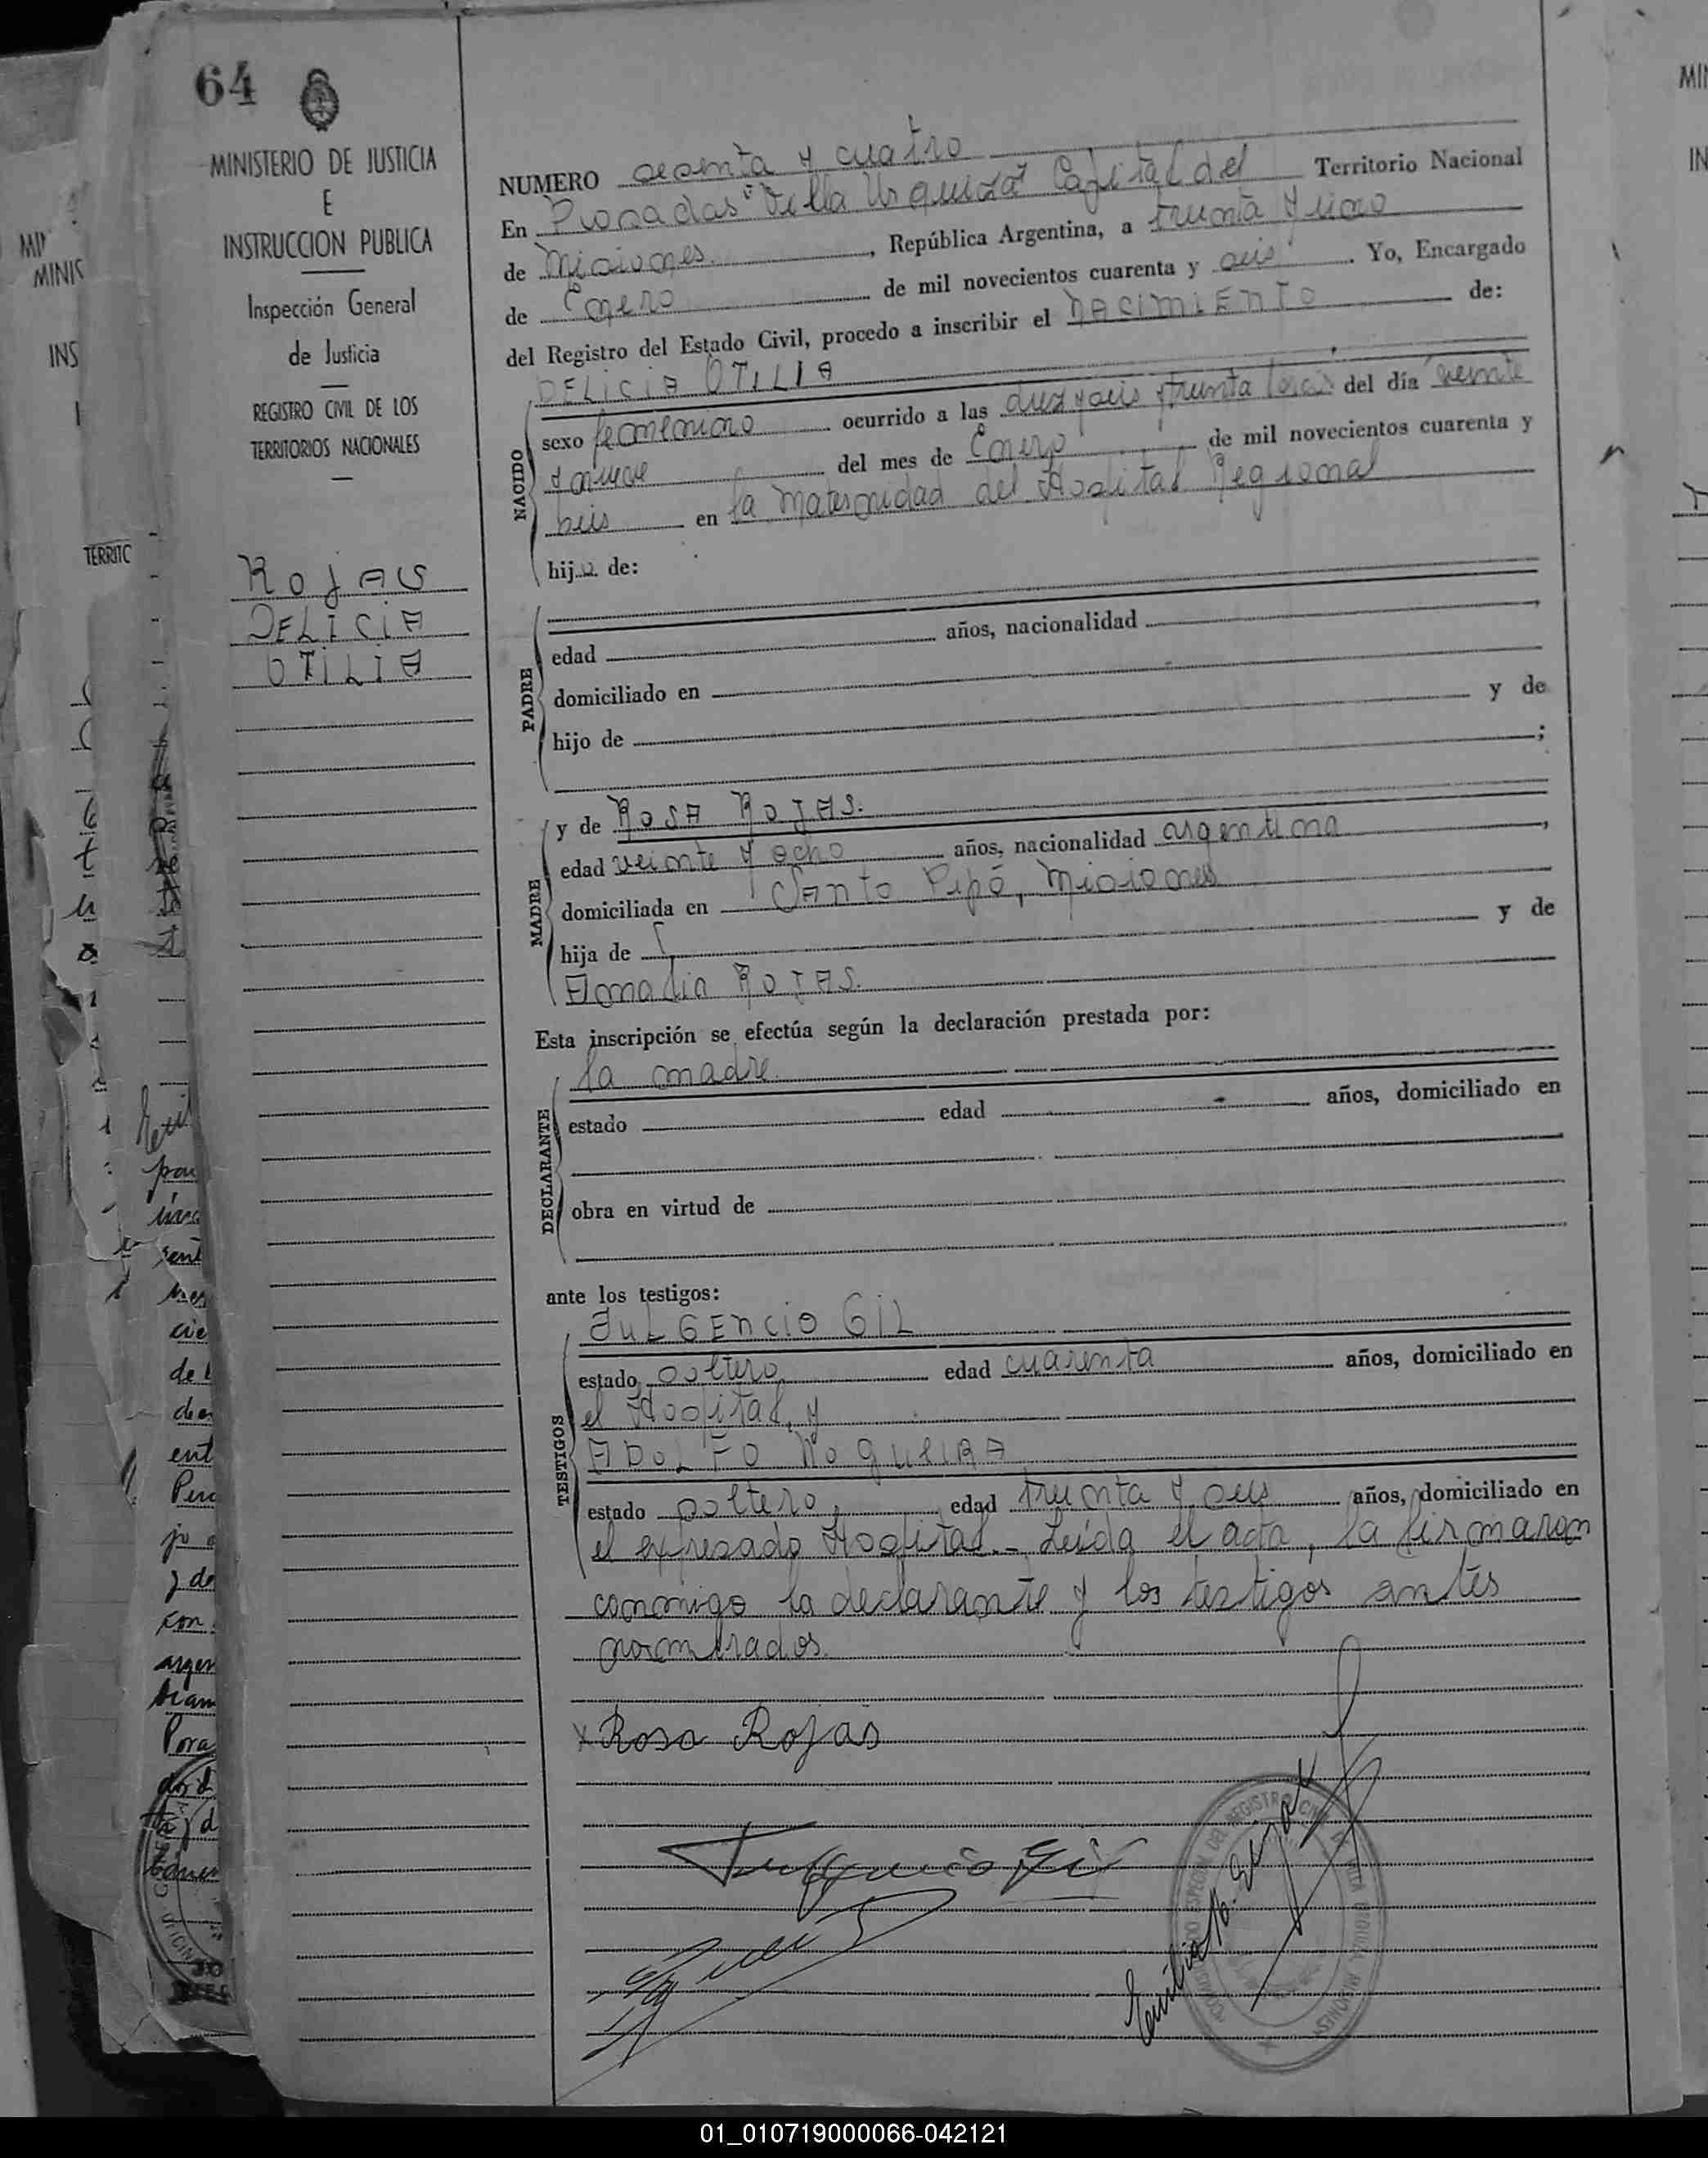 64
MINISTERIO DE JUSTICIA
E
INSTRUCCION PUBLICA
Inspección General
de Justicia
REGISTRO CIVIL DE LOS
TERRITORIOS NACIONALES
ROJAS
DELICIA
OTILIA
NUMERO sesenta y cuatro
En Posadas "Villa Urquiza" Capital del Territorio Nacional
de Misiones, República Argentina, a treinta y uno
de Enero de mil novecientos cuarenta y seis. Yo, Encargado
del Registro del Estado Civil, procedo a inscribir el NACIMIENTO de:
DELICIA OTILIA
NACIDO
sexo femenino ocurrido a las diez y seis y treinta horas del día veinte
y nueve del mes de Enero de mil novecientos cuarenta y
seis en la Maternidad del Hospital Regional
hija de:
PADRE
edad años, nacionalidad
domiciliado en
hijo de y de
;
MADRE
y de ROSA ROJAS.
edad veinte y ocho años, nacionalidad argentina,
domiciliada en Santo Pipó, Misiones
hija de y de
Amalia ROJAS.
Esta inscripción se efectúa según la declaración prestada por:
la madre.
DECLARANTE
estado edad años, domiciliado en
obra en virtud de
ante los testigos:
TESTIGOS
FULGENCIO GIL
estado soltero edad cuarenta años, domiciliado en
el Hospital, y
ADOLFO NOGUEIRA
estado soltero, edad treinta y seis años, domiciliado en
el expresado Hospital.- Leída el acta, la firmaron
conmigo la declarante y los testigos antes
nombrados.
x Rosa Rojas
Fulgencio Gil
01_010719000066-042121